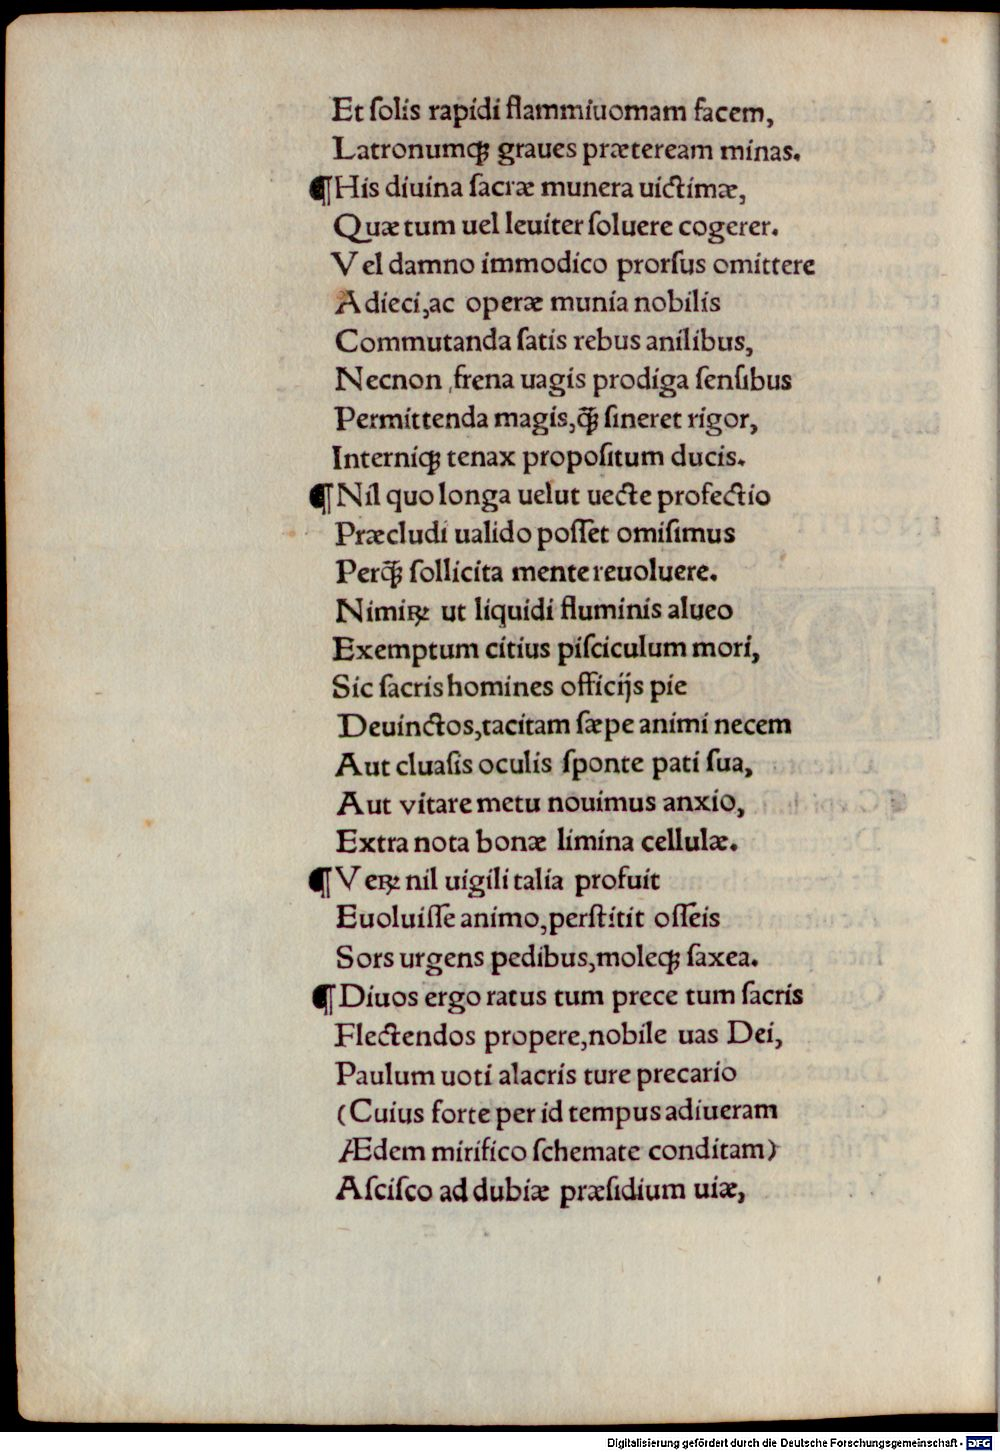 Et ſolis rapidi flammiuomam facem,
Latronumq; graues præteream minas.
¶ His diuina ſacræ munera uictimæ,
Quæ tum uel leuiter ſoluere cogerer.
Vel damno immodico prorſus omittere
Adieci, ac operæ munia nobilis
Commutanda ſatis rebus anilibus,
Necnon frena uagis prodiga ſenſibus
Permittenda magis, q̃ꝫ ſineret rigor,
Interniq; tenax propoſitum ducis.
¶ Nil quo longa uelut uecte profectio
Præcludi ualido poſſet omiſimus
Perq̃ꝫ ſollicita mente reuoluere.
Nimiꝝ ut liquidi fluminis alueo
Exemptum citius piſciculum mori,
Sic ſacris homines officijs pie
Deuinctos, tacitam ſæpe animi necem
Aut cluaſis oculis ſponte pati ſua,
Aut vitare metu nouimus anxio,
Extra nota bonæ limina cellulæ.
¶ Veꝝ nil uigili talia profuit
Euoluiſſe animo, perſtitit oſſeis
Sors urgens pedibus, moleq; ſaxea.
¶ Diuos ergo ratus tum prece tum ſacris
Flectendos propere, nobile uas Dei,
Paulum uoti alacris ture precario
(Cuius forte per id tempus adiueram
Ædem mirifico ſchemate conditam)
Aſciſco ad dubiæ præſidium uiæ,
Digitalisierung gefördert durch die Deutsche Forschungsgemeinschaft - DFG